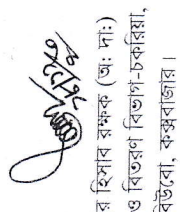 র হিসাব রক্ষক (অঃ দাঃ)
ও বিতরণ বিভাগ-চকরিয়া,
বিউবো, কক্সবাজার।